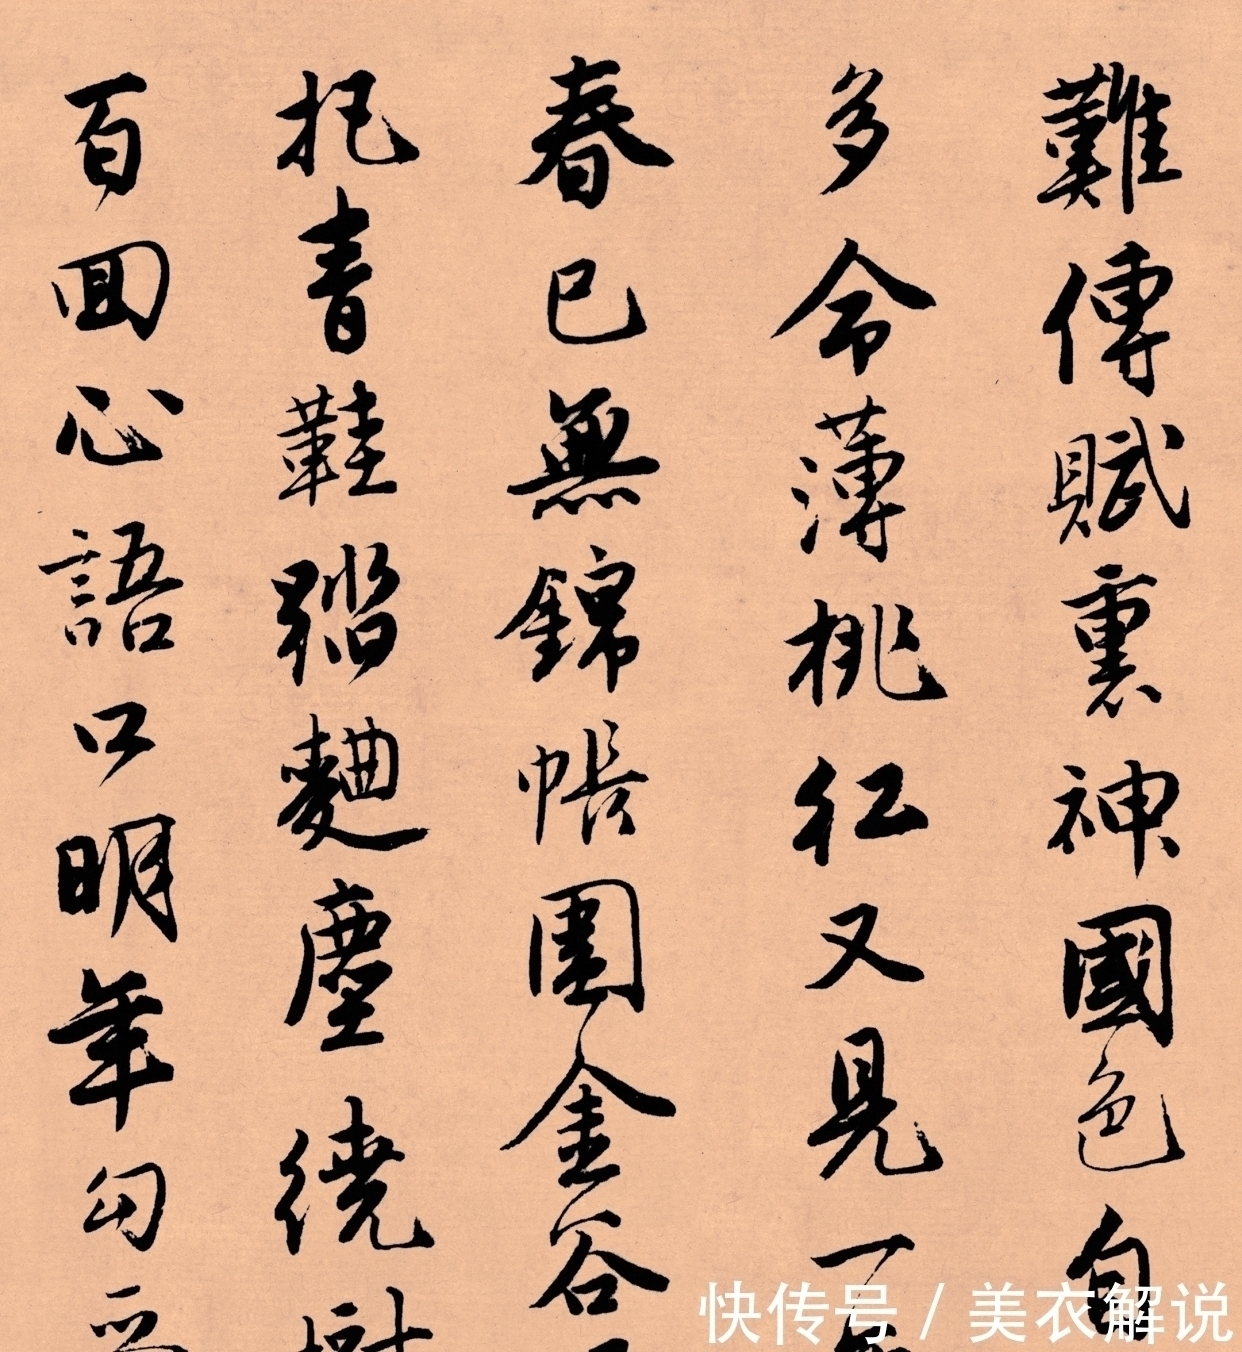 難傳賦裏神國色自
多命薄桃紅又見一
春已無錦帳圍金谷
把青鞋踏麴塵繞樹
百回心語口明年勾
快传号 / 美衣解说